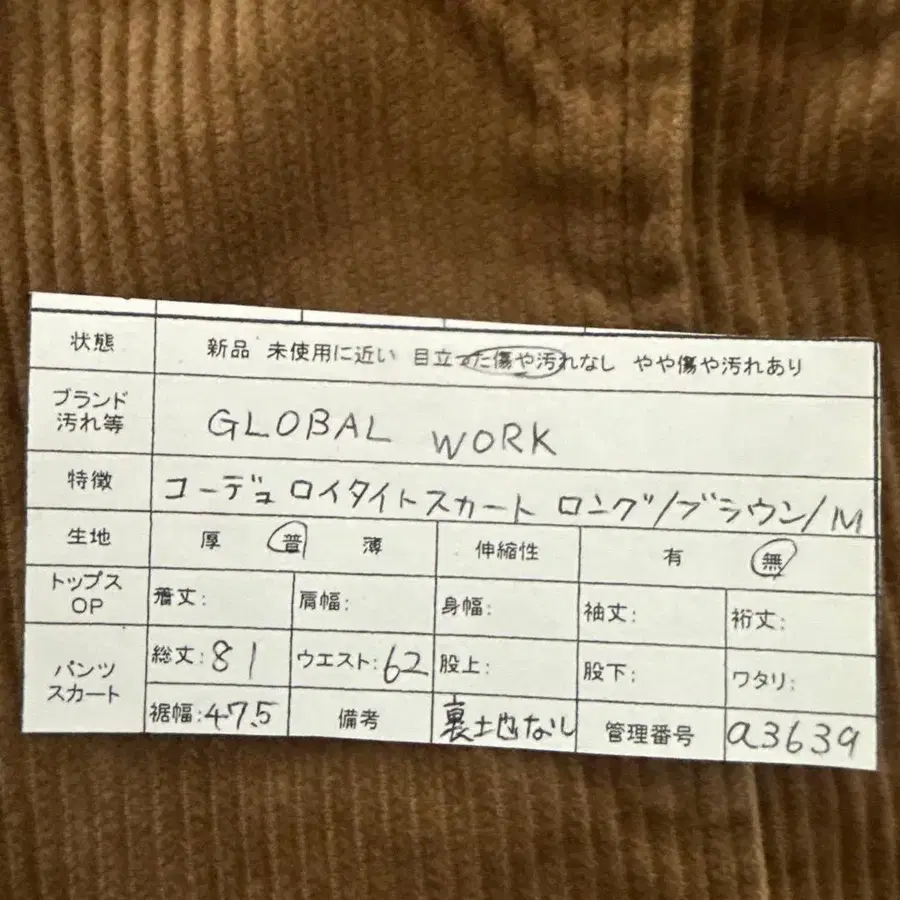 状態 新品 未使用に近い 目立った傷や汚れなし やや傷や汚れあり
ブランド
汚れ等 GLOBAL WORK
特徴 コーデュロイタイトスカート ロング/ブラウン/M
生地 厚 普 薄 伸縮性 有 無
トップス
OP 着丈: 肩幅: 身幅: 袖丈: 裄丈:
パンツ
スカート 総丈:81 ウエスト:62 股上: 股下: ワタリ:
裾幅:47.5 備考 裏地なし 管理番号 a3639